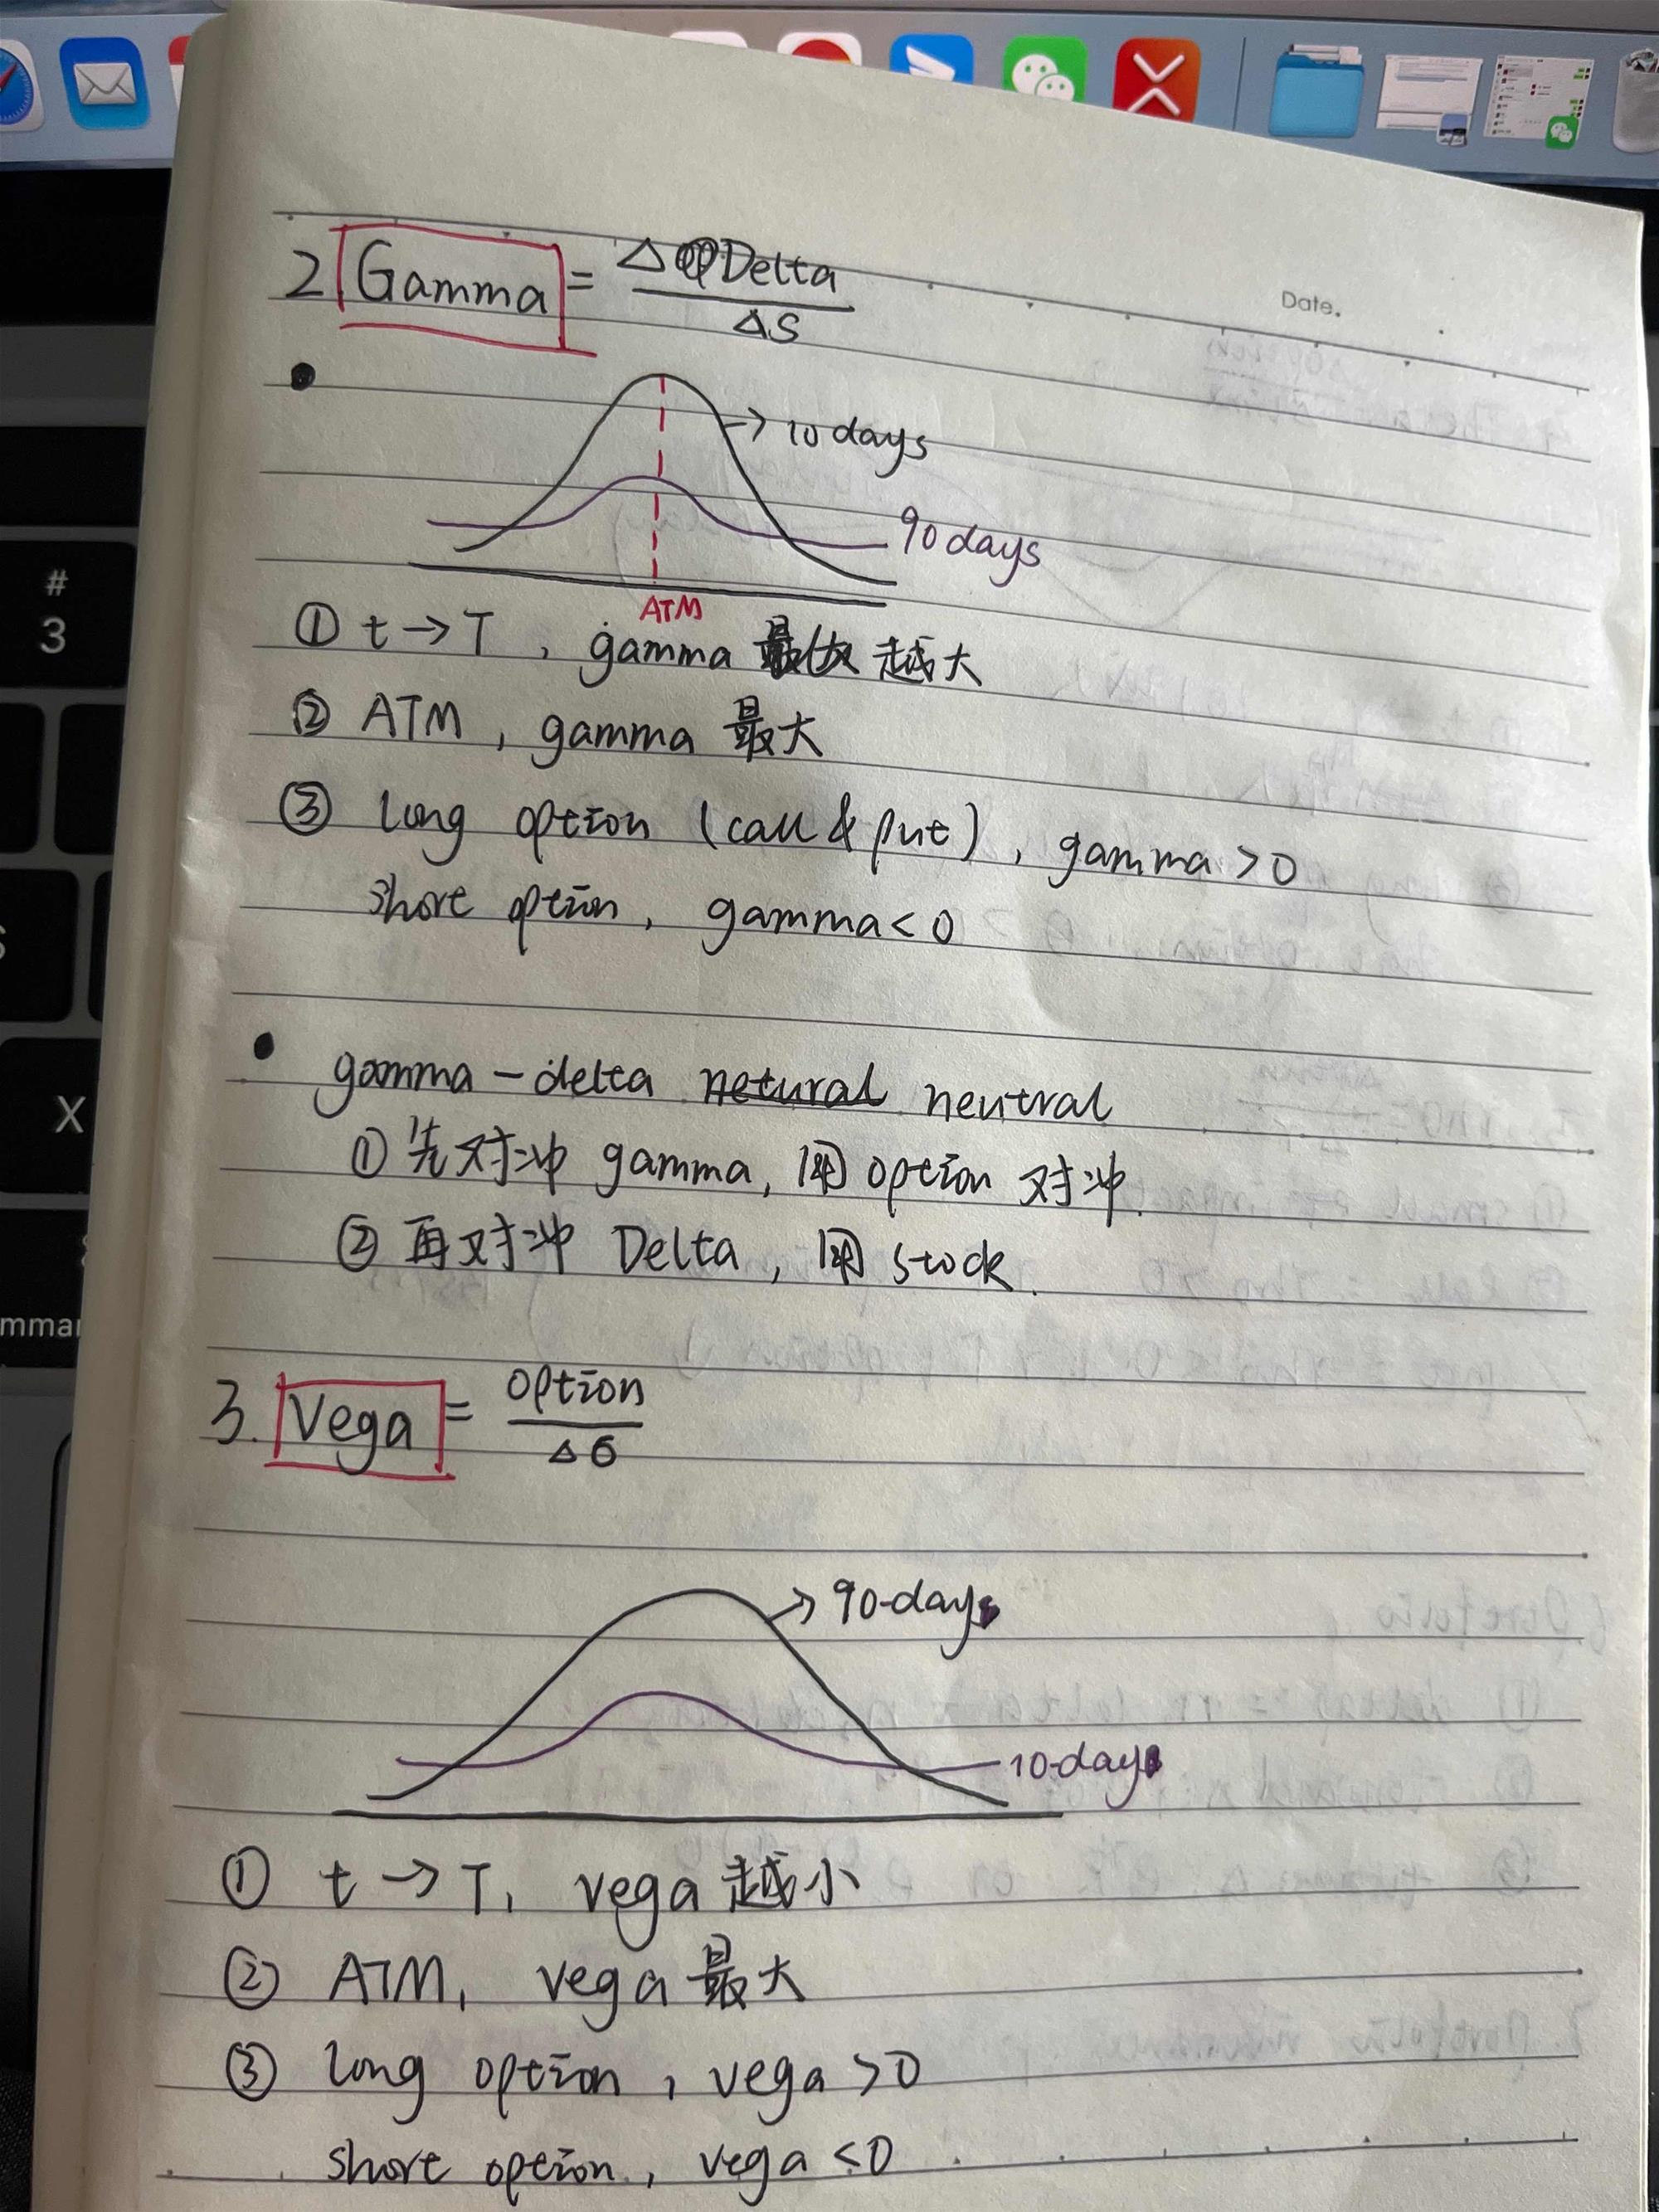 Date.
2. Gamma = ΔDelta / ΔS
10 days
90 days
ATM
① t → T , gamma 越大
② ATM , gamma 最大
③ long option (call & put) , gamma > 0
short option , gamma < 0
gamma - delta netural neutral
① 先对冲 gamma, 用 option 对冲.
② 再对冲 Delta , 用 stock.
3. Vega = option / Δσ
90-days
10-days
① t → T, vega 越小
② ATM, vega 最大
③ long option , vega > 0
short option , vega < 0
#
3
X